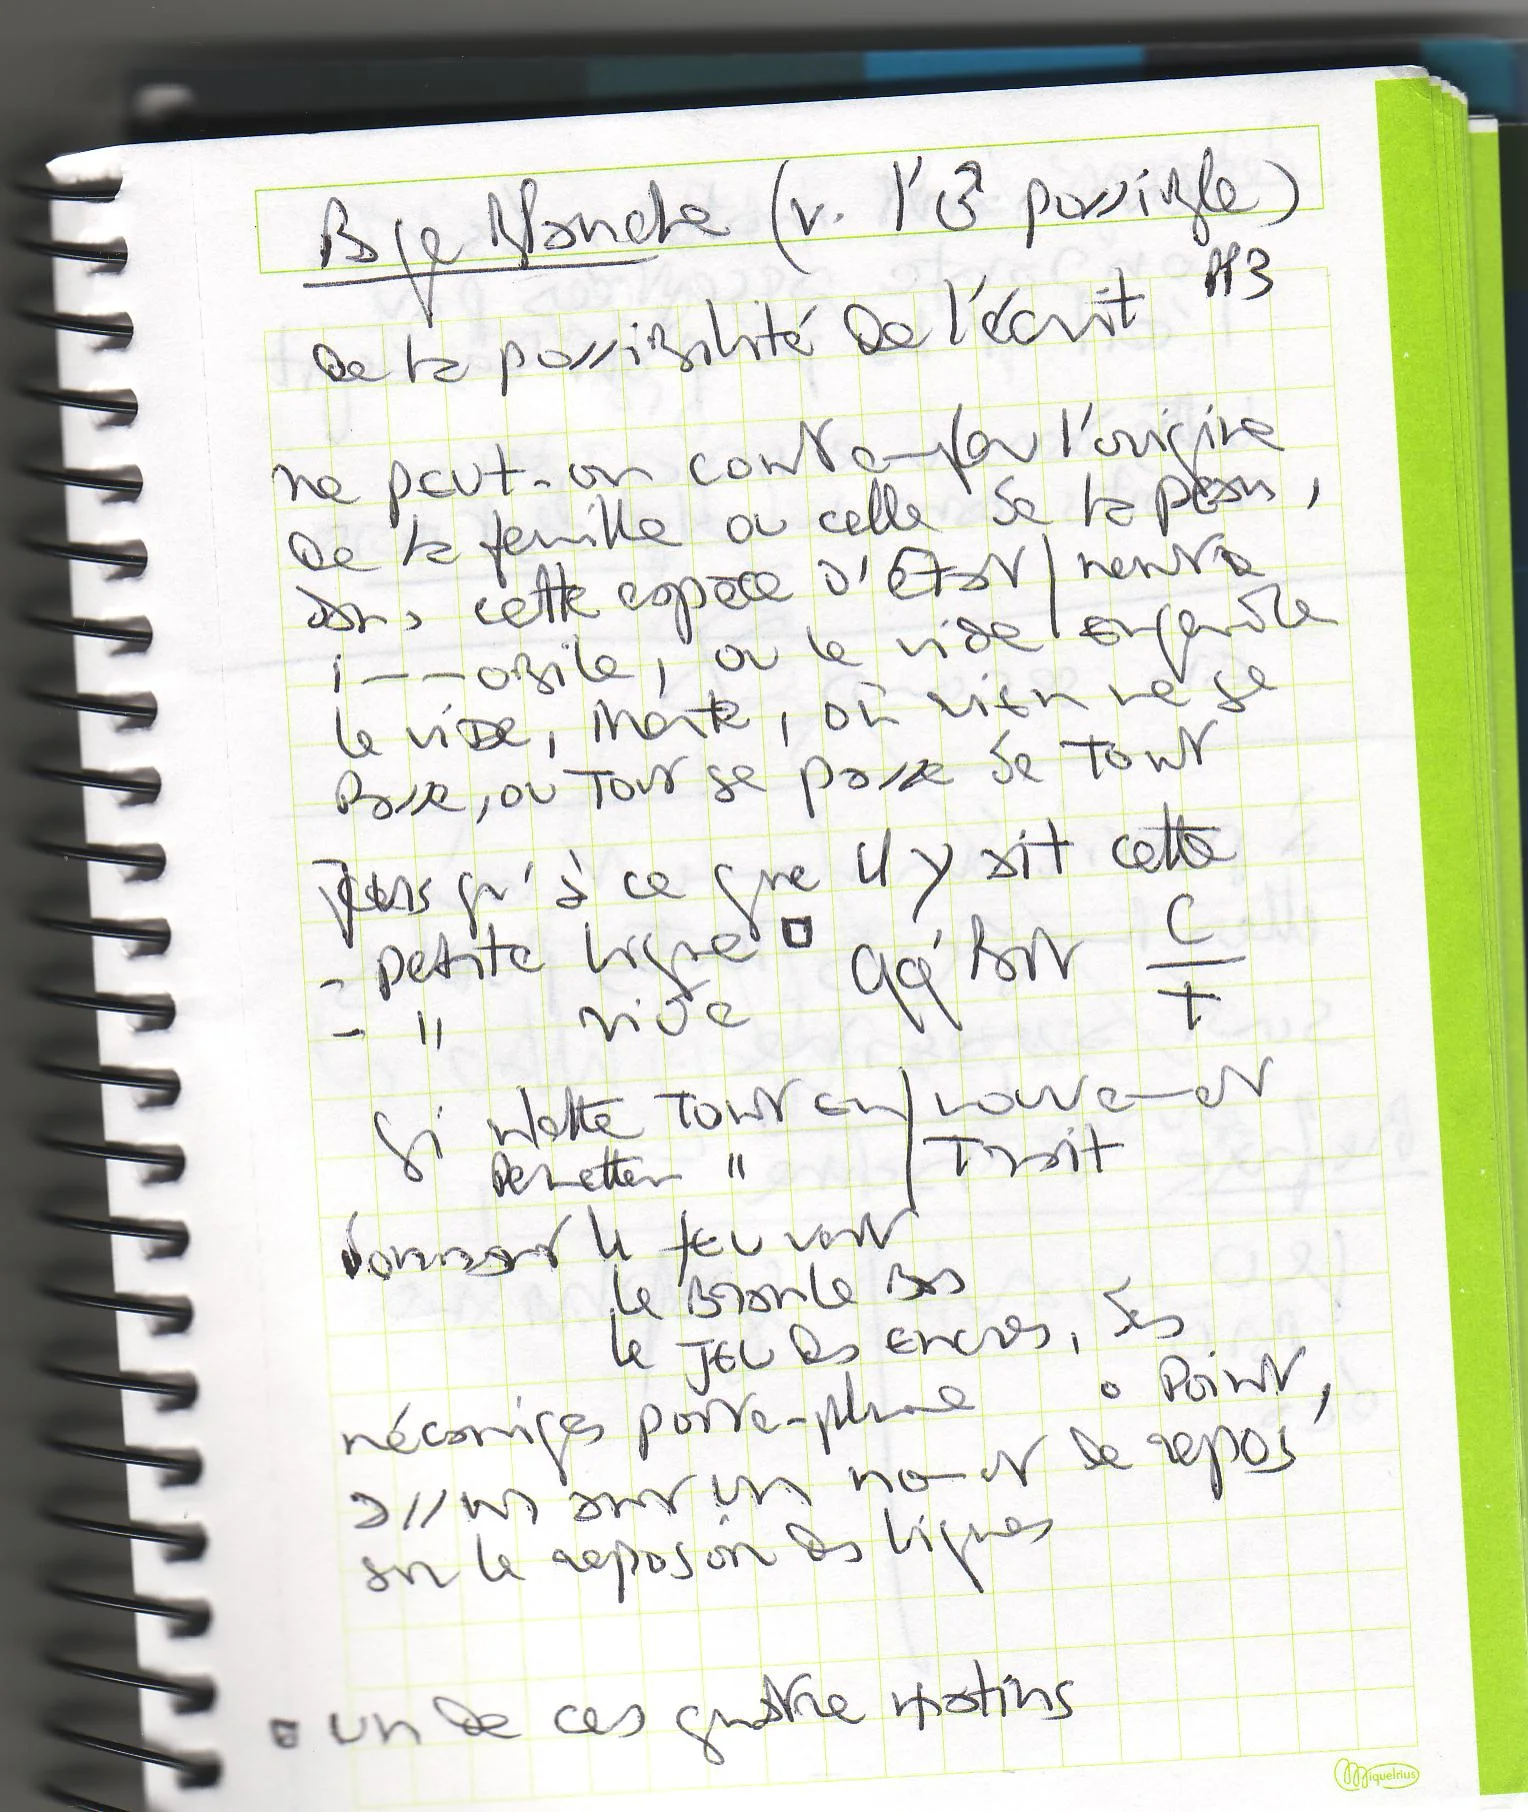 Page Blanche (v. l'3 possible)
#3
De la possibilité De l'écrit
ne peut-on contempler l'origine
De la feuille ou celle de la peau,
Dans cette espèce d'Etat | neutre
immobile, ou le vide engendre
le vide, inerte, où rien ne se
Passe, ou Tout se passe de Tout
Jusqu'à ce que il y ait cette
- petite ligne qq' part C
- " vide T
Si Mette Tout en | mouvement
Permettre " | Trait
Donnant le feu vert
le Branle Bas
le JEU Des Encres, des
mécaniques porte-plume Point,
assurant un moment de repos
sur le reposoir des lignes
un De ces quatre matins
Miquelrius